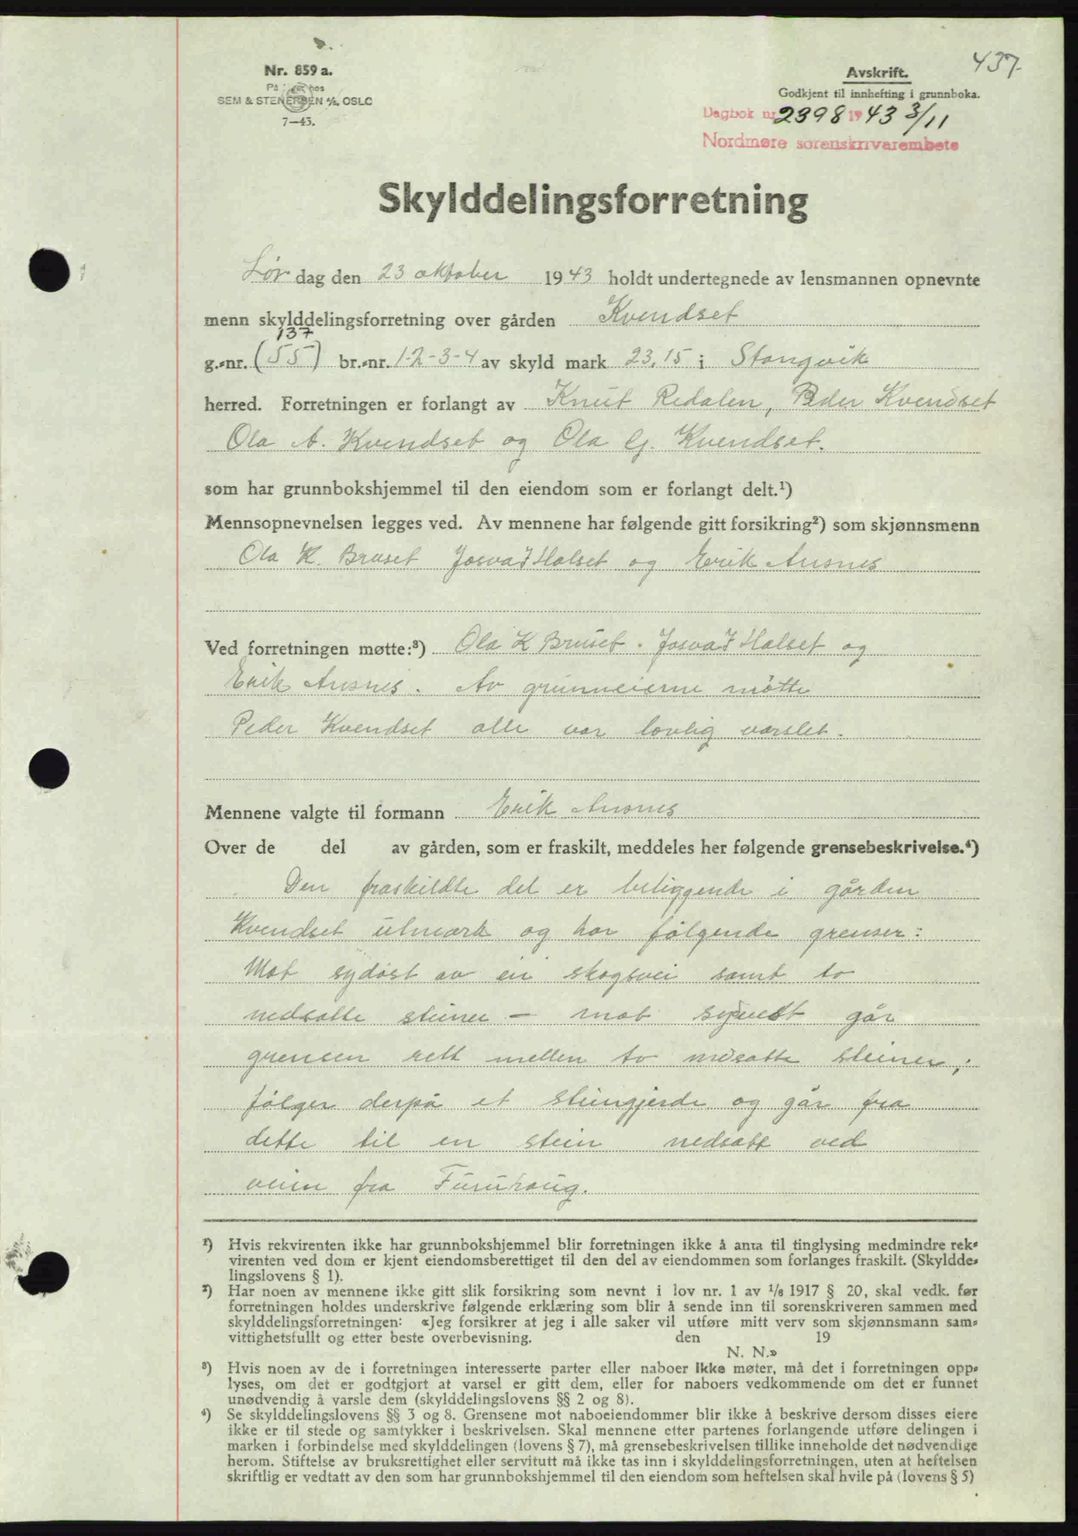 437
Nr. 859 a.
SEM & STENERSEN A/S, OSLO
7—43.
Avskrift.
Godkjent til innhefting i grunnboka.
Dagbok nr. 2398 1943 3/11
Nordmøre sorenskrivarembete
Skylddelingsforretning
Lør dag den 23 oktober 1943 holdt undertegnede av lensmannen opnevnte
menn skylddelingsforretning over gården Kvendset
137
g.-nr. (55) br.-nr. 1-2-3-4 av skyld mark 23,15 i Stangvik
herred. Forretningen er forlangt av Knut Redalen, Peder Kvendset
Ola A. Kvendset og Ola G. Kvendset.
som har grunnbokshjemmel til den eiendom som er forlangt delt.¹)
Mennsopnevnelsen legges ved. Av mennene har følgende gitt forsikring²) som skjønnsmenn
Ola K. Bruset Josva Halset og Erik Ansnes
Ved forretningen møtte:³) Ola K Bruset. Josva Halset og
Erik Ansnes. Av grunneierne møtte
Peder Kvendset alle var lovlig varslet.
Mennene valgte til formann Erik Ansnes
Over de del av gården, som er fraskilt, meddeles her følgende grensebeskrivelse.⁴)
Den fraskildte del er beliggende i gården
Kvendset utmark og har følgende grenser:
Mot sydøst av en skogsvei samt to
nedsatte steiner — mot sydvest går
grensen rett mellen to nedsatte steiner,
følger derpå et steingjerde og går fra
dette til en stein nedsatt ved
veien fra Furuhaug.
¹) Hvis rekvirenten ikke har grunnbokshjemmel blir forretningen ikke å anta til tinglysing medmindre rek-
virenten ved dom er kjent eiendomsberettiget til den del av eiendommen som forlanges fraskilt. (Skyldde-
lingslovens § 1).
²) Har noen av mennene ikke gitt slik forsikring som nevnt i lov nr. 1 av 1/6 1917 § 20, skal vedk. før
forretningen holdes underskrive følgende erklæring som blir å sende inn til sorenskriveren sammen med
skylddelingsforretningen: «Jeg forsikrer at jeg i alle saker vil utføre mitt verv som skjønnsmann sam-
vittighetsfullt og etter beste overbevisning. den 19
N. N.»
³) Hvis noen av de i forretningen interesserte parter eller naboer ikke møter, må det i forretningen opp-
lyses, om det er godtgjort at varsel er gitt dem, eller for naboers vedkommende om det er funnet
unødvendig å varsle dem (skylddelingslovens §§ 2 og 8).
⁴) Se skylddelingslovens §§ 3 og 8. Grensene mot naboeiendommer blir ikke å beskrive dersom disses eiere
ikke er til stede og samtykker i beskrivelsen. Skal mennene etter partenes forlangende utføre delingen i
marken i forbindelse med skylddelingen (lovens § 7), må grensebeskrivelsen tillike inneholde det nødvendige
herom. Stiftelse av bruksrettighet eller servitutt må ikke tas inn i skylddelingsforretningen, uten at heftelsen
skriftlig er vedtatt av den som har grunnbokshjemmel til den eiendom som heftelsen skal hvile på (lovens § 5)